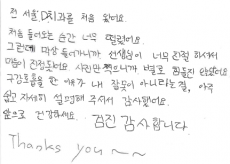 전 서울D치과를 처음 왔어요.
처음 들어오는 순간 너무 떨렸어요.
그런데 막상 들어가니까 선생님이 너무 친절하셔서
마음이 진정됐어요 사진만 찍으니까 별로 힘들진 않았어요
구강호흡을 한 이유가 내 잘못이 아니라는걸, 아주
쉽고 자세히 설명해 주셔서 감사했어요.
앞으로 건강하세요. 검진 감사합니다.
Thanks you~~